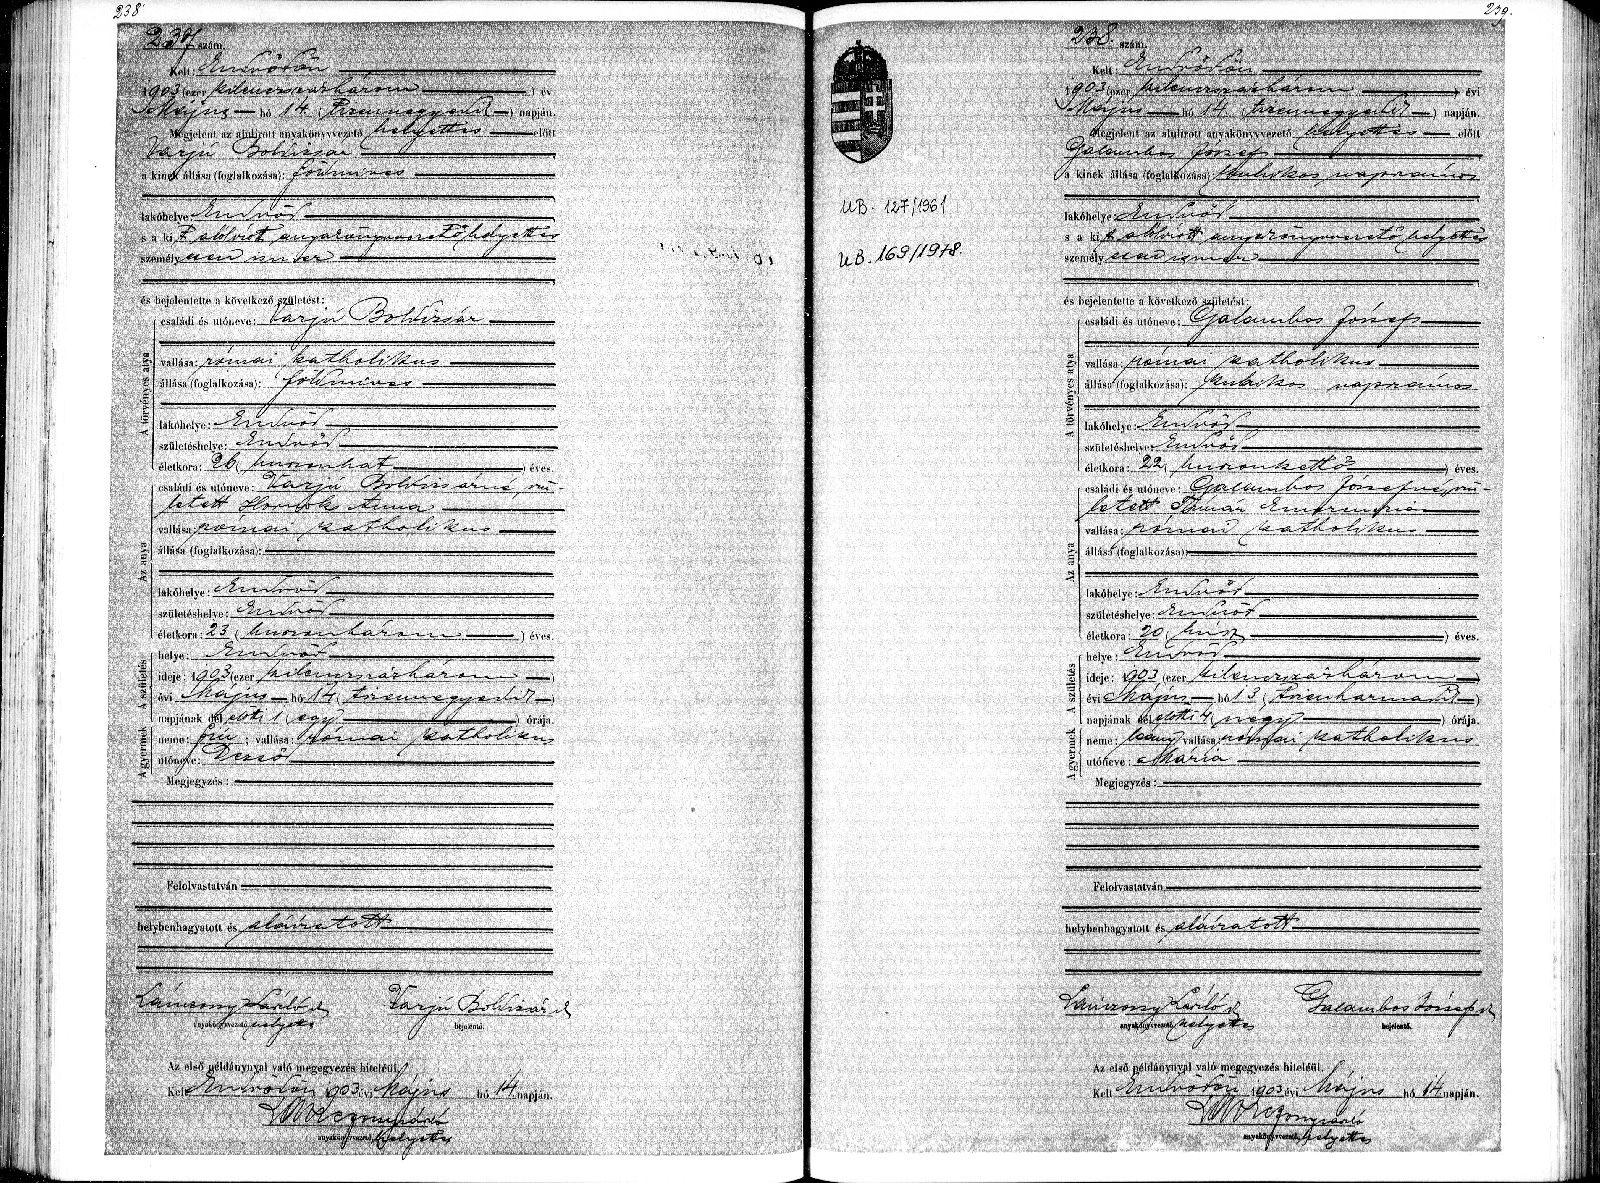 238
237 szám.
Kelt: Endrődön
1903 (ezer kilencszázhárom) év
Május hó 14. (tizennegyedik) napján.
Megjelent az alulirott anyakönyvvezető helyettes előtt
Varjú Boldizsár
a kinek állása (foglalkozása): földmives
lakóhelye Endrőd
s a ki t alólirott anyakönyvvezető helyettes
személyesen ismer
és bejelentette a következő születést:
A törvényes atya
családi és utóneve: Varjú Boldizsár
vallása: római katholikus
állása (foglalkozása): földmives
lakóhelye: Endrőd
születéshelye: Endrőd
életkora: 26 (huszonhat) éves.
Az anya
családi és utóneve: Varjú Boldizsárné, szü-
letett Hornok Anna
vallása: római katholikus
állása (foglalkozása):
lakóhelye: Endrőd
születéshelye: Endrőd
életkora: 23 (huszonhárom) éves.
A születés
helye: Endrőd
ideje: 1903 (ezer kilencszázhárom)
évi Május hó 14 (tizennegyedik)
napjának dél előtti 1 (egy) órája.
A gyermek
neme: fiú; vallása: római katholikus
utóneve: Dezső
Megjegyzés:
Felolvastatván
helybenhagyatott és aláiratott
László
anyakönyvvezető helyettes
Varjú Boldizsár
bejelentő.
Az első példánynyal való megegyezés hiteléül
Kelt Endrődön 1903 évi Május hó 14 napján.
anyakönyvvezető helyettes
239.
238. szám.
Kelt: Endrődön
1903 (ezer kilencszázhárom) évi
Május hó 14 (tizennegyedik) napján.
Megjelent az alulirott anyakönyvvezető helyettes előtt
Galambos József
a kinek állása (foglalkozása): kubikos napszámos
lakóhelye: Endrőd
s a ki t alólirott anyakönyvvezető helyettes
személy ismer
és bejelentette a következő születést:
A törvényes atya
családi és utóneve: Galambos József
vallása: római katholikus
állása (foglalkozása): kubikos napszámos
lakóhelye: Endrőd
születéshelye: Endrőd
életkora: 22 (huszonkettő) éves.
Az anya
családi és utóneve: Galambos Józsefné, szü-
letett Tímár Emerencia
vallása: római katholikus
állása (foglalkozása):
lakóhelye: Endrőd
születéshelye: Endrőd
életkora: 20 (húsz) éves.
A születés
helye: Endrőd
ideje: 1903 (ezer kilencszázhárom)
évi Május hó 13 (tizenharmadik)
napjának dél előtti 4 (négy) órája.
A gyermek
neme: leány vallása: római katholikus
utóneve: Mária
Megjegyzés:
Felolvastatván
helybenhagyatott és aláiratott
László
anyakönyvvezető helyettes
Galambos József
bejelentő.
Az első példánynyal való megegyezés hiteléül
Kelt Endrődön 1903 évi Május hó 14 napján.
anyakönyvvezető, helyettes
UB. 127/1961
UB. 169/1978.